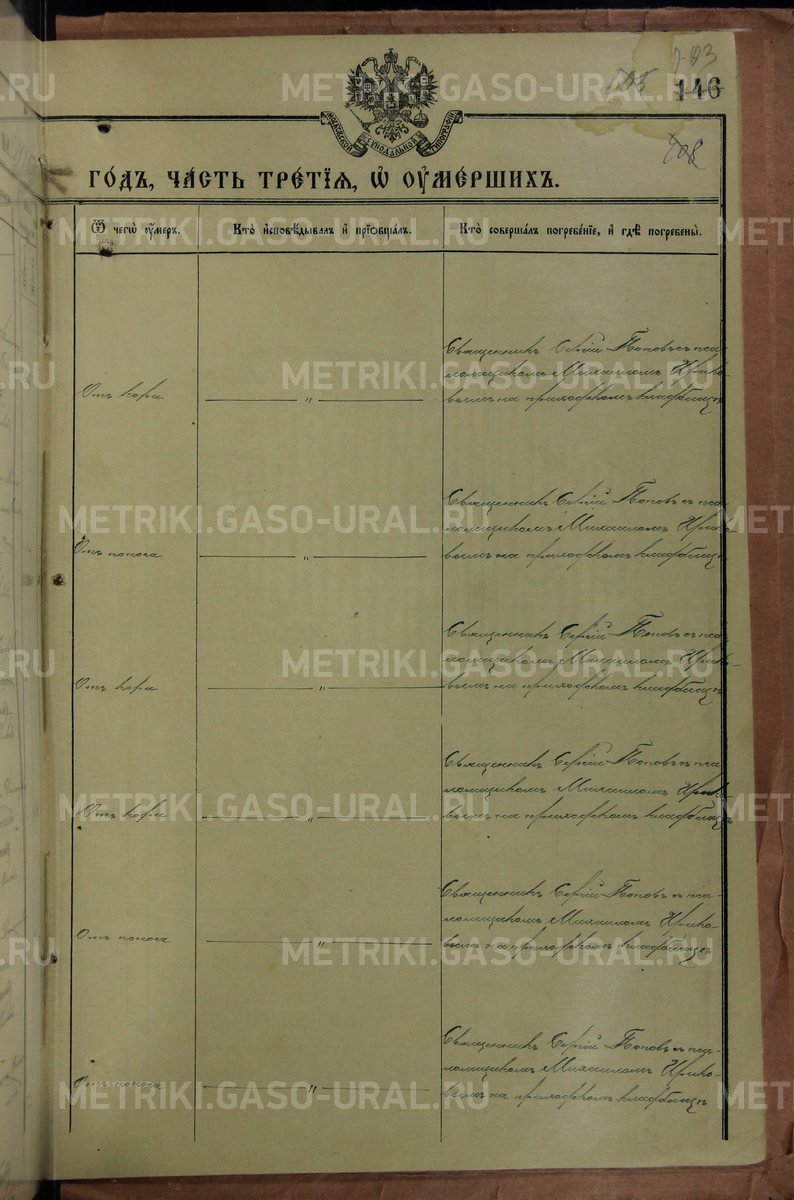 203
146
МОСКОВСКОЙ СѴНОДАЛЬНОЙ ТИПОГРАФІИ
408
ГО́ДЪ, ЧА́СТЬ ТРЕ́ТІѦ, Ѽ ОУ҆МЕ́РШИХЪ.
Ѿ чегѡ̀ оу҆́меръ.
Кто̀ и҆сповѣ́дывалъ и҆ прїѡбща́лъ.
Кто̀ соверша́лъ погребе́нїе, и҆ гдѣ̀ погребены̀.
Отъ кори
"
Священникъ Сергій Поповъ съ пса-
ломщикомъ Михаиломъ
на приходскомъ кладбищѣ
Отъ поноса
"
Священникъ Сергій Поповъ съ пса-
ломщикомъ Михаиломъ
на приходскомъ кладбищѣ
Отъ кори
"
Священникъ Сергій Поповъ съ пса-
ломщикомъ Михаиломъ
на приходскомъ кладбищѣ
Отъ кори
"
Священникъ Сергій Поповъ съ пса-
ломщикомъ Михаиломъ
на приходскомъ кладбищѣ
Отъ поноса
"
Священникъ Сергій Поповъ съ пса-
ломщикомъ Михаиломъ
на приходскомъ кладбищѣ
Отъ поноса
"
Священникъ Сергій Поповъ съ пса-
ломщикомъ Михаиломъ
на приходскомъ кладбищѣ
METRIKI.GASO-URAL.RU